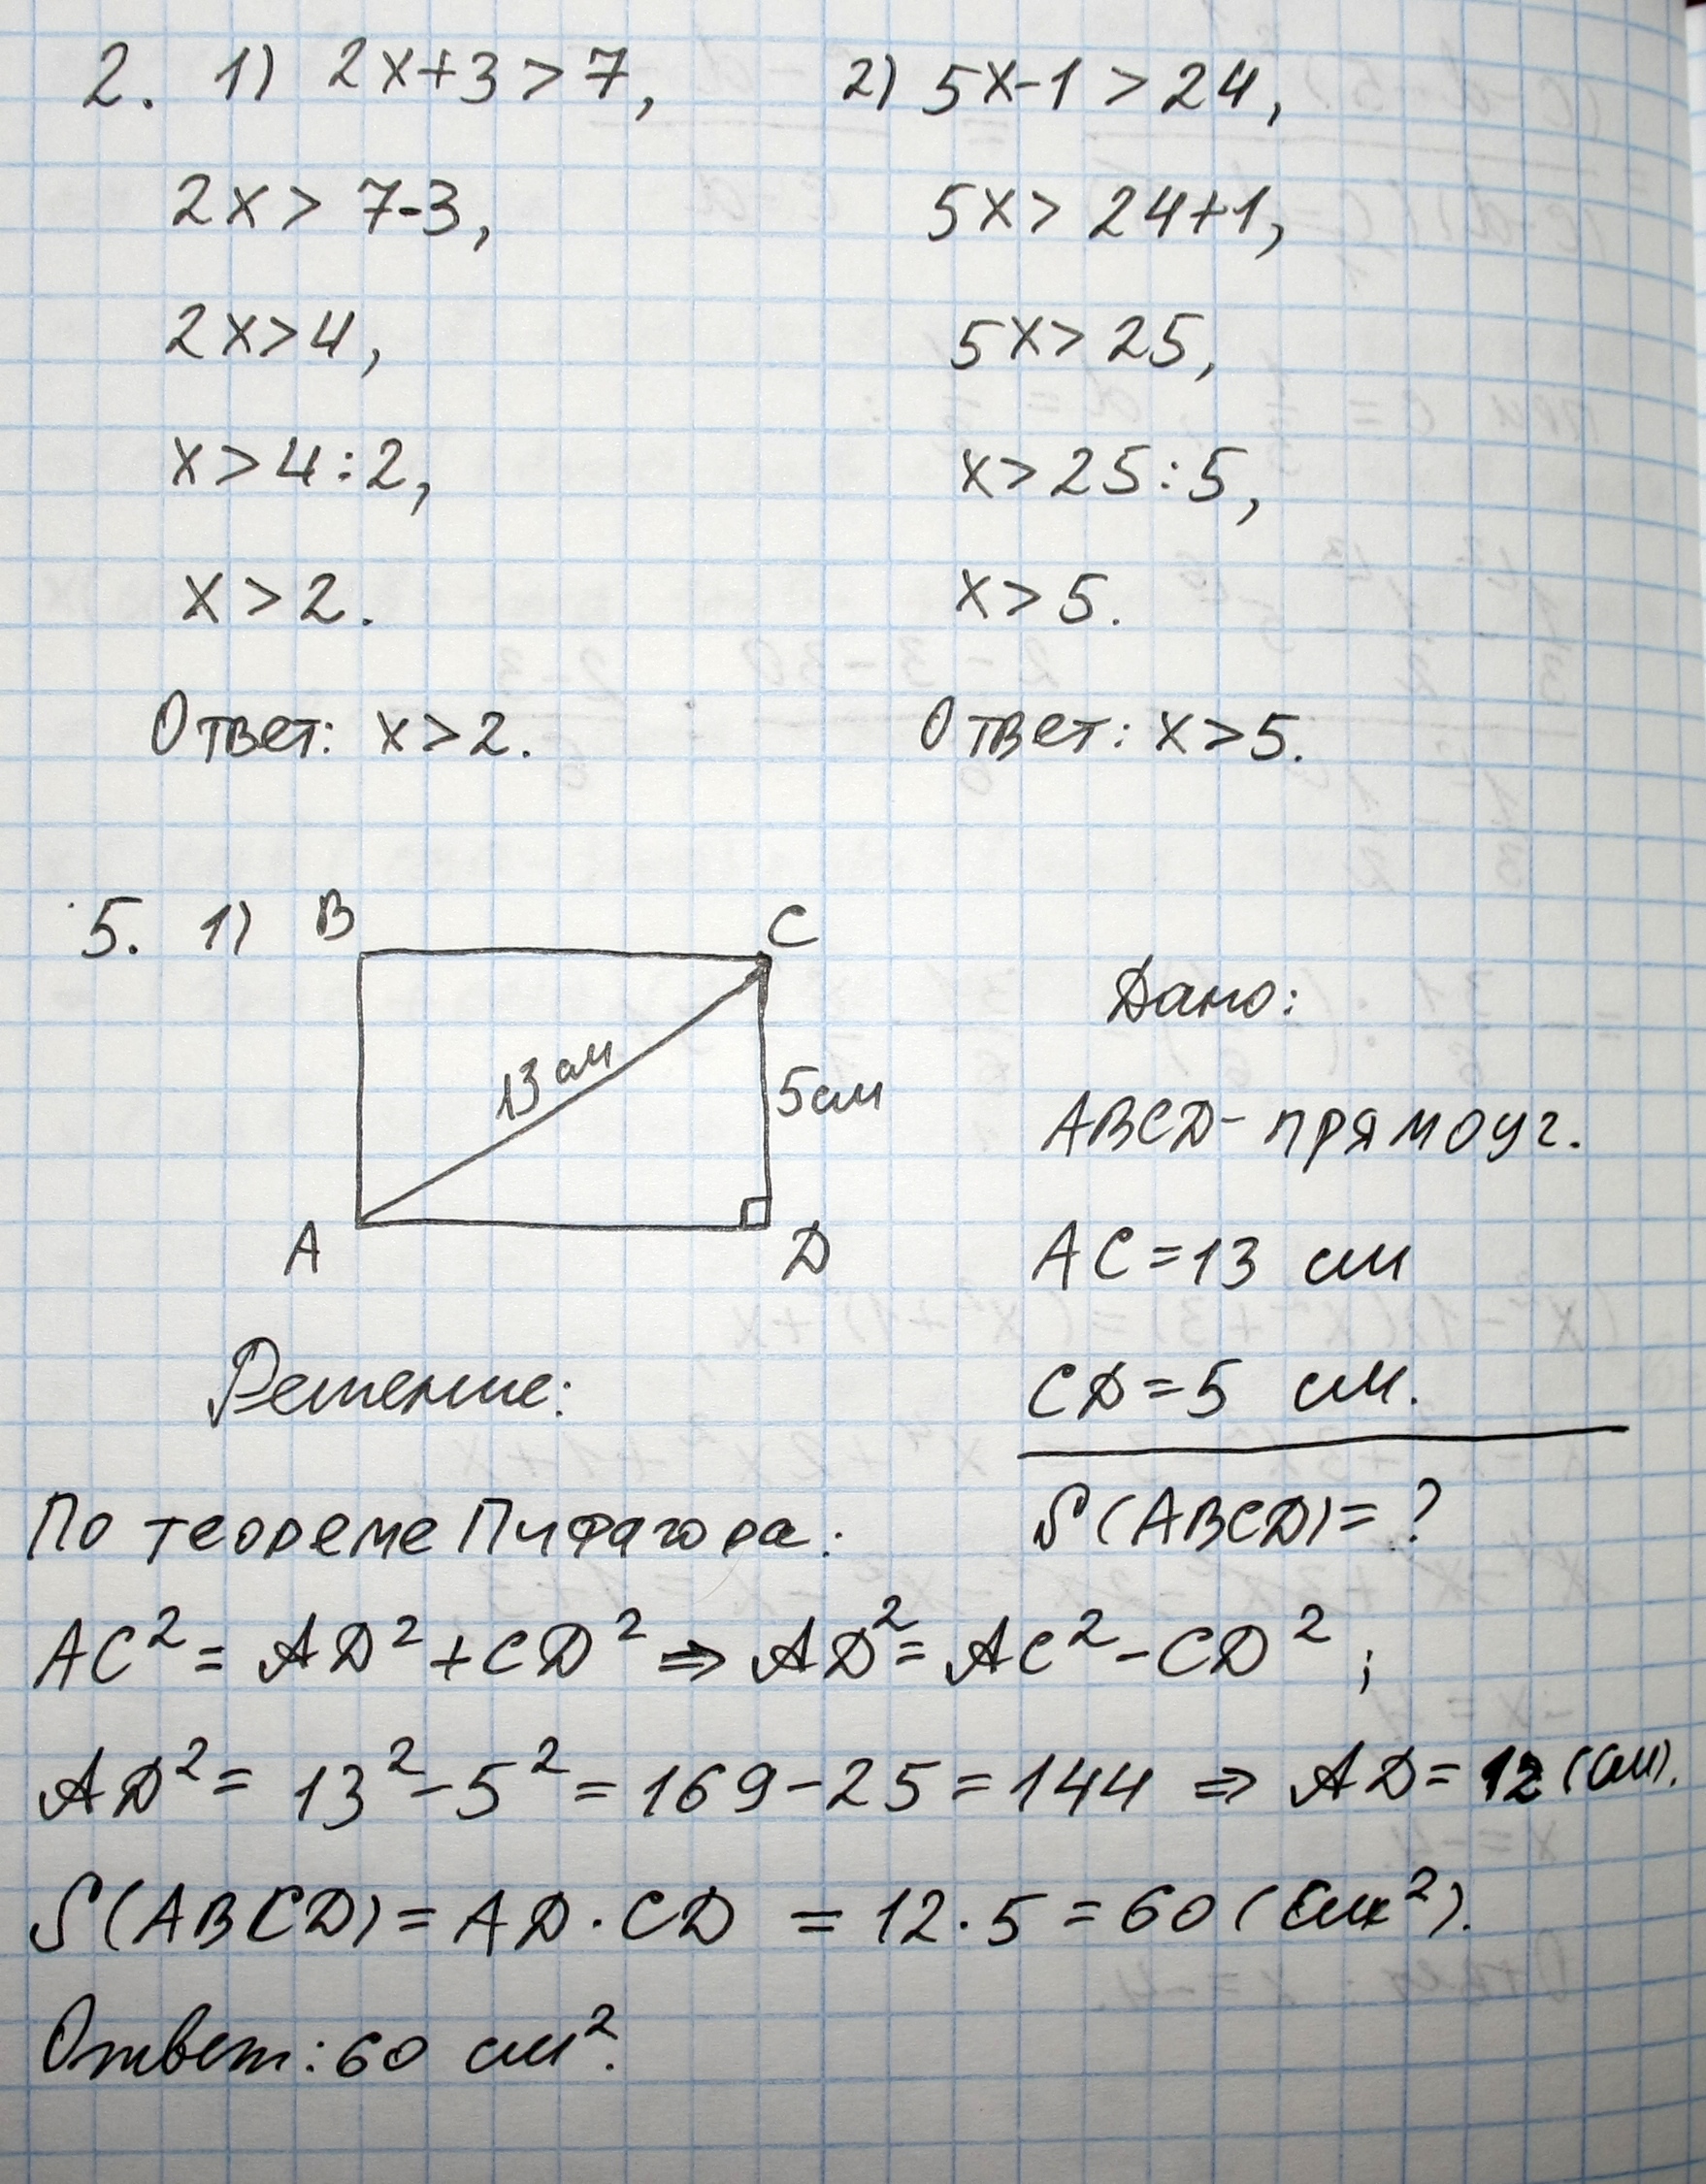 2. 1) 2x+3>7,
2x>7-3,
2x>4,
x>4:2,
x>2.
Ответ: x>2.
2) 5x-1>24,
5x>24+1,
5x>25,
x>25:5,
x>5.
Ответ: x>5.
5. 1)
B
C
13 см
5см
A
D
Дано:
ABCD- прямоуг.
AC=13 см
CD=5 см.
S(ABCD)=?
Решение:
По теореме Пифагора:
AC²= AD²+CD² ⇒ AD²= AC²-CD²;
AD²= 13²-5²=169-25=144 ⇒ AD=12 (см).
S(ABCD)=AD·CD =12·5=60 (см²).
Ответ: 60 см².